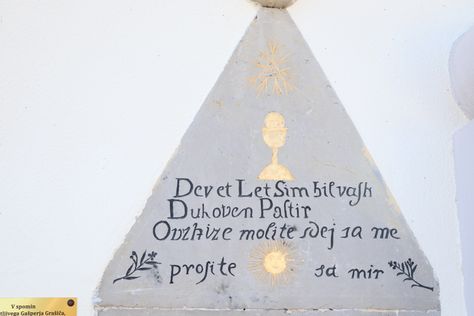 Devet Let Sim bil vaſh
Duhoven Paſtir
Ovzhize molite sdej sa me
proſite sa mir
V spomin
Gašperja Grašiča,